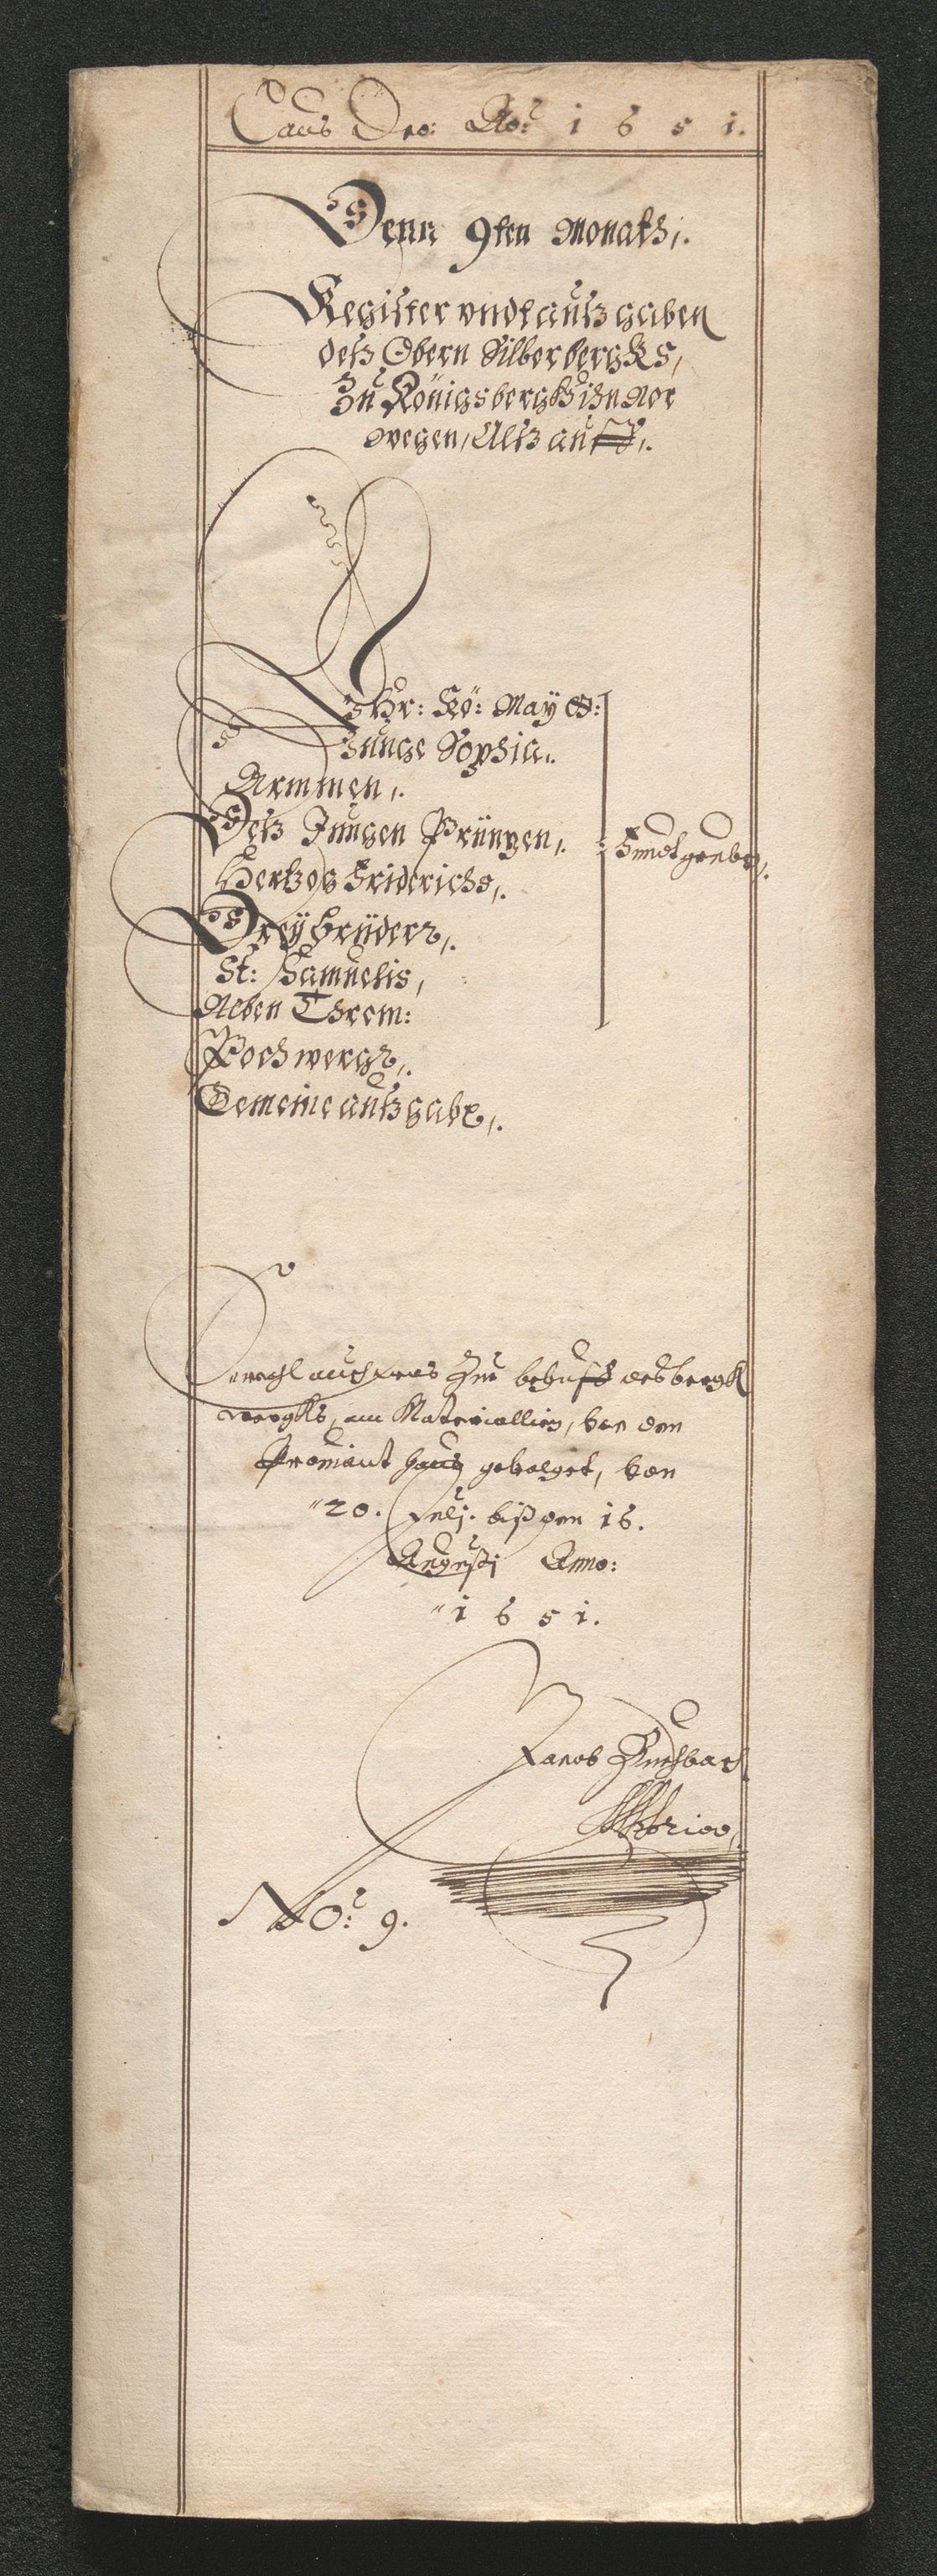 Laus Deo: Ao: 1651.
Denn 9ten Monats,.
Register undt außgaben
deß Obern Silberbergks,
Zu Königsbergk ihn Nor
wegen, Alß auff,.
Ihr: Kö: May tt:
Junge Sophia,.
Armmen,.
Deß Jungen Printzen,.
Fundtgruben,.
Hertzog Friderichs,.
Drey brüder,.
St: Samuelis,
Neben Threm:
Pochwergk,.
Gemeine außgabe,.
Sowohl auch was Zur behuff des bergk
wergks, an Materiallien, von dem
Proviant hauß gevolget, von
20. Julj. biß den 16.
Augustj Anno:
1651.
Jacob
No: 9.